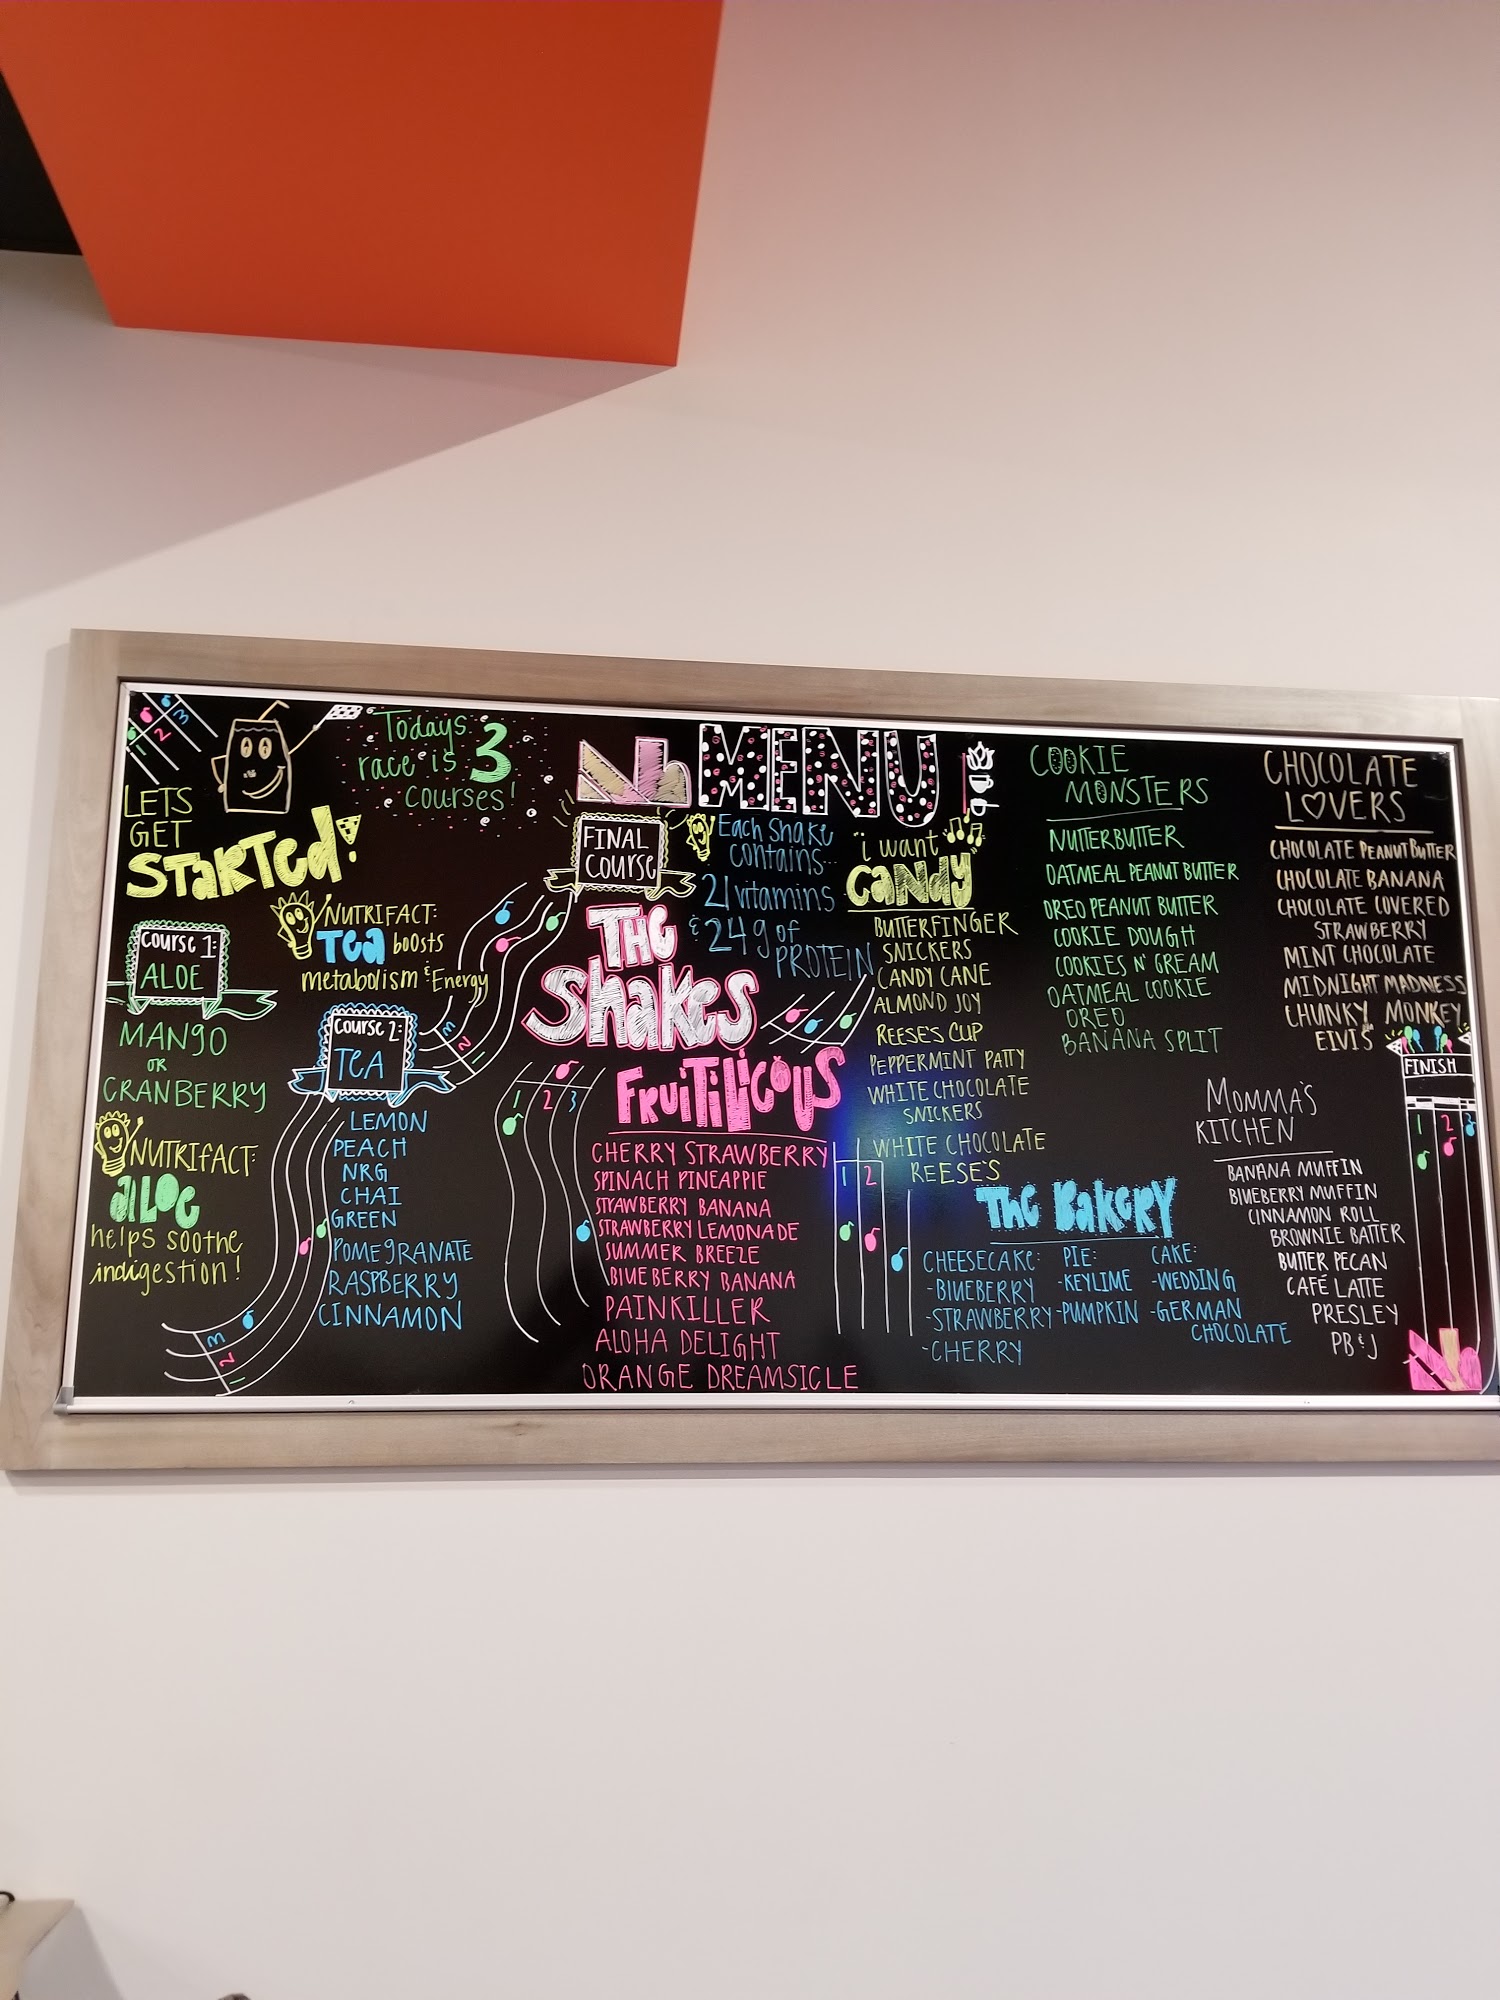 1
2
3
LETS
GET
STARTEd!
Todays
race is 3
courses!
course 1:
ALOE
MANGO
OR
CRANBERRY
NUTRIFACT:
aloe
helps soothe
indigestion!
NUTRIFACT:
Tea boosts
metabolism & Energy
course 2:
TEA
LEMON
PEACH
NRG
CHAI
GREEN
POMEGRANATE
RASPBERRY
CINNAMON
3
2
1
3
2
1
MENU
FINAL
COURSE
Each shake
contains...
21 vitamins
& 24g of
PROTEIN
THE
Shakes
1 2 3
FRUITILICOUS
CHERRY STRAWBERRY
SPINACH PINEAPPLE
STRAWBERRY BANANA
STRAWBERRY LEMONADE
SUMMER BREEZE
BLUEBERRY BANANA
PAINKILLER
ALOHA DELIGHT
ORANGE DREAMSICLE
1 2
"i want
CANDY
BUTTERFINGER
SNICKERS
CANDY CANE
ALMOND JOY
REESE'S CUP
PEPPERMINT PATTY
WHITE CHOCOLATE
SNICKERS
WHITE CHOCOLATE
REESE'S
COOKIE
MONSTERS
NUTTERBUTTER
OATMEAL PEANUT BUTTER
OREO PEANUT BUTTER
COOKIE DOUGH
COOKIES N' CREAM
OATMEAL COOKIE
OREO
BANANA SPLIT
THE BAKERY
CHEESECAKE:
-BLUEBERRY
-STRAWBERRY
-CHERRY
PIE:
-KEYLIME
-PUMPKIN
CAKE:
-WEDDING
-GERMAN
CHOCOLATE
CHOCOLATE
LOVERS
CHOCOLATE PEANUT BUTTER
CHOCOLATE BANANA
CHOCOLATE COVERED
STRAWBERRY
MINT CHOCOLATE
MIDNIGHT MADNESS
CHUNKY MONKEY
ElVIS
MOMMA'S
KITCHEN
BANANA MUFFIN
BLUEBERRY MUFFIN
CINNAMON ROLL
BROWNIE BATTER
BUTTER PECAN
CAFÉ LATTE
PRESLEY
PB & J
FINISH
1 2 3